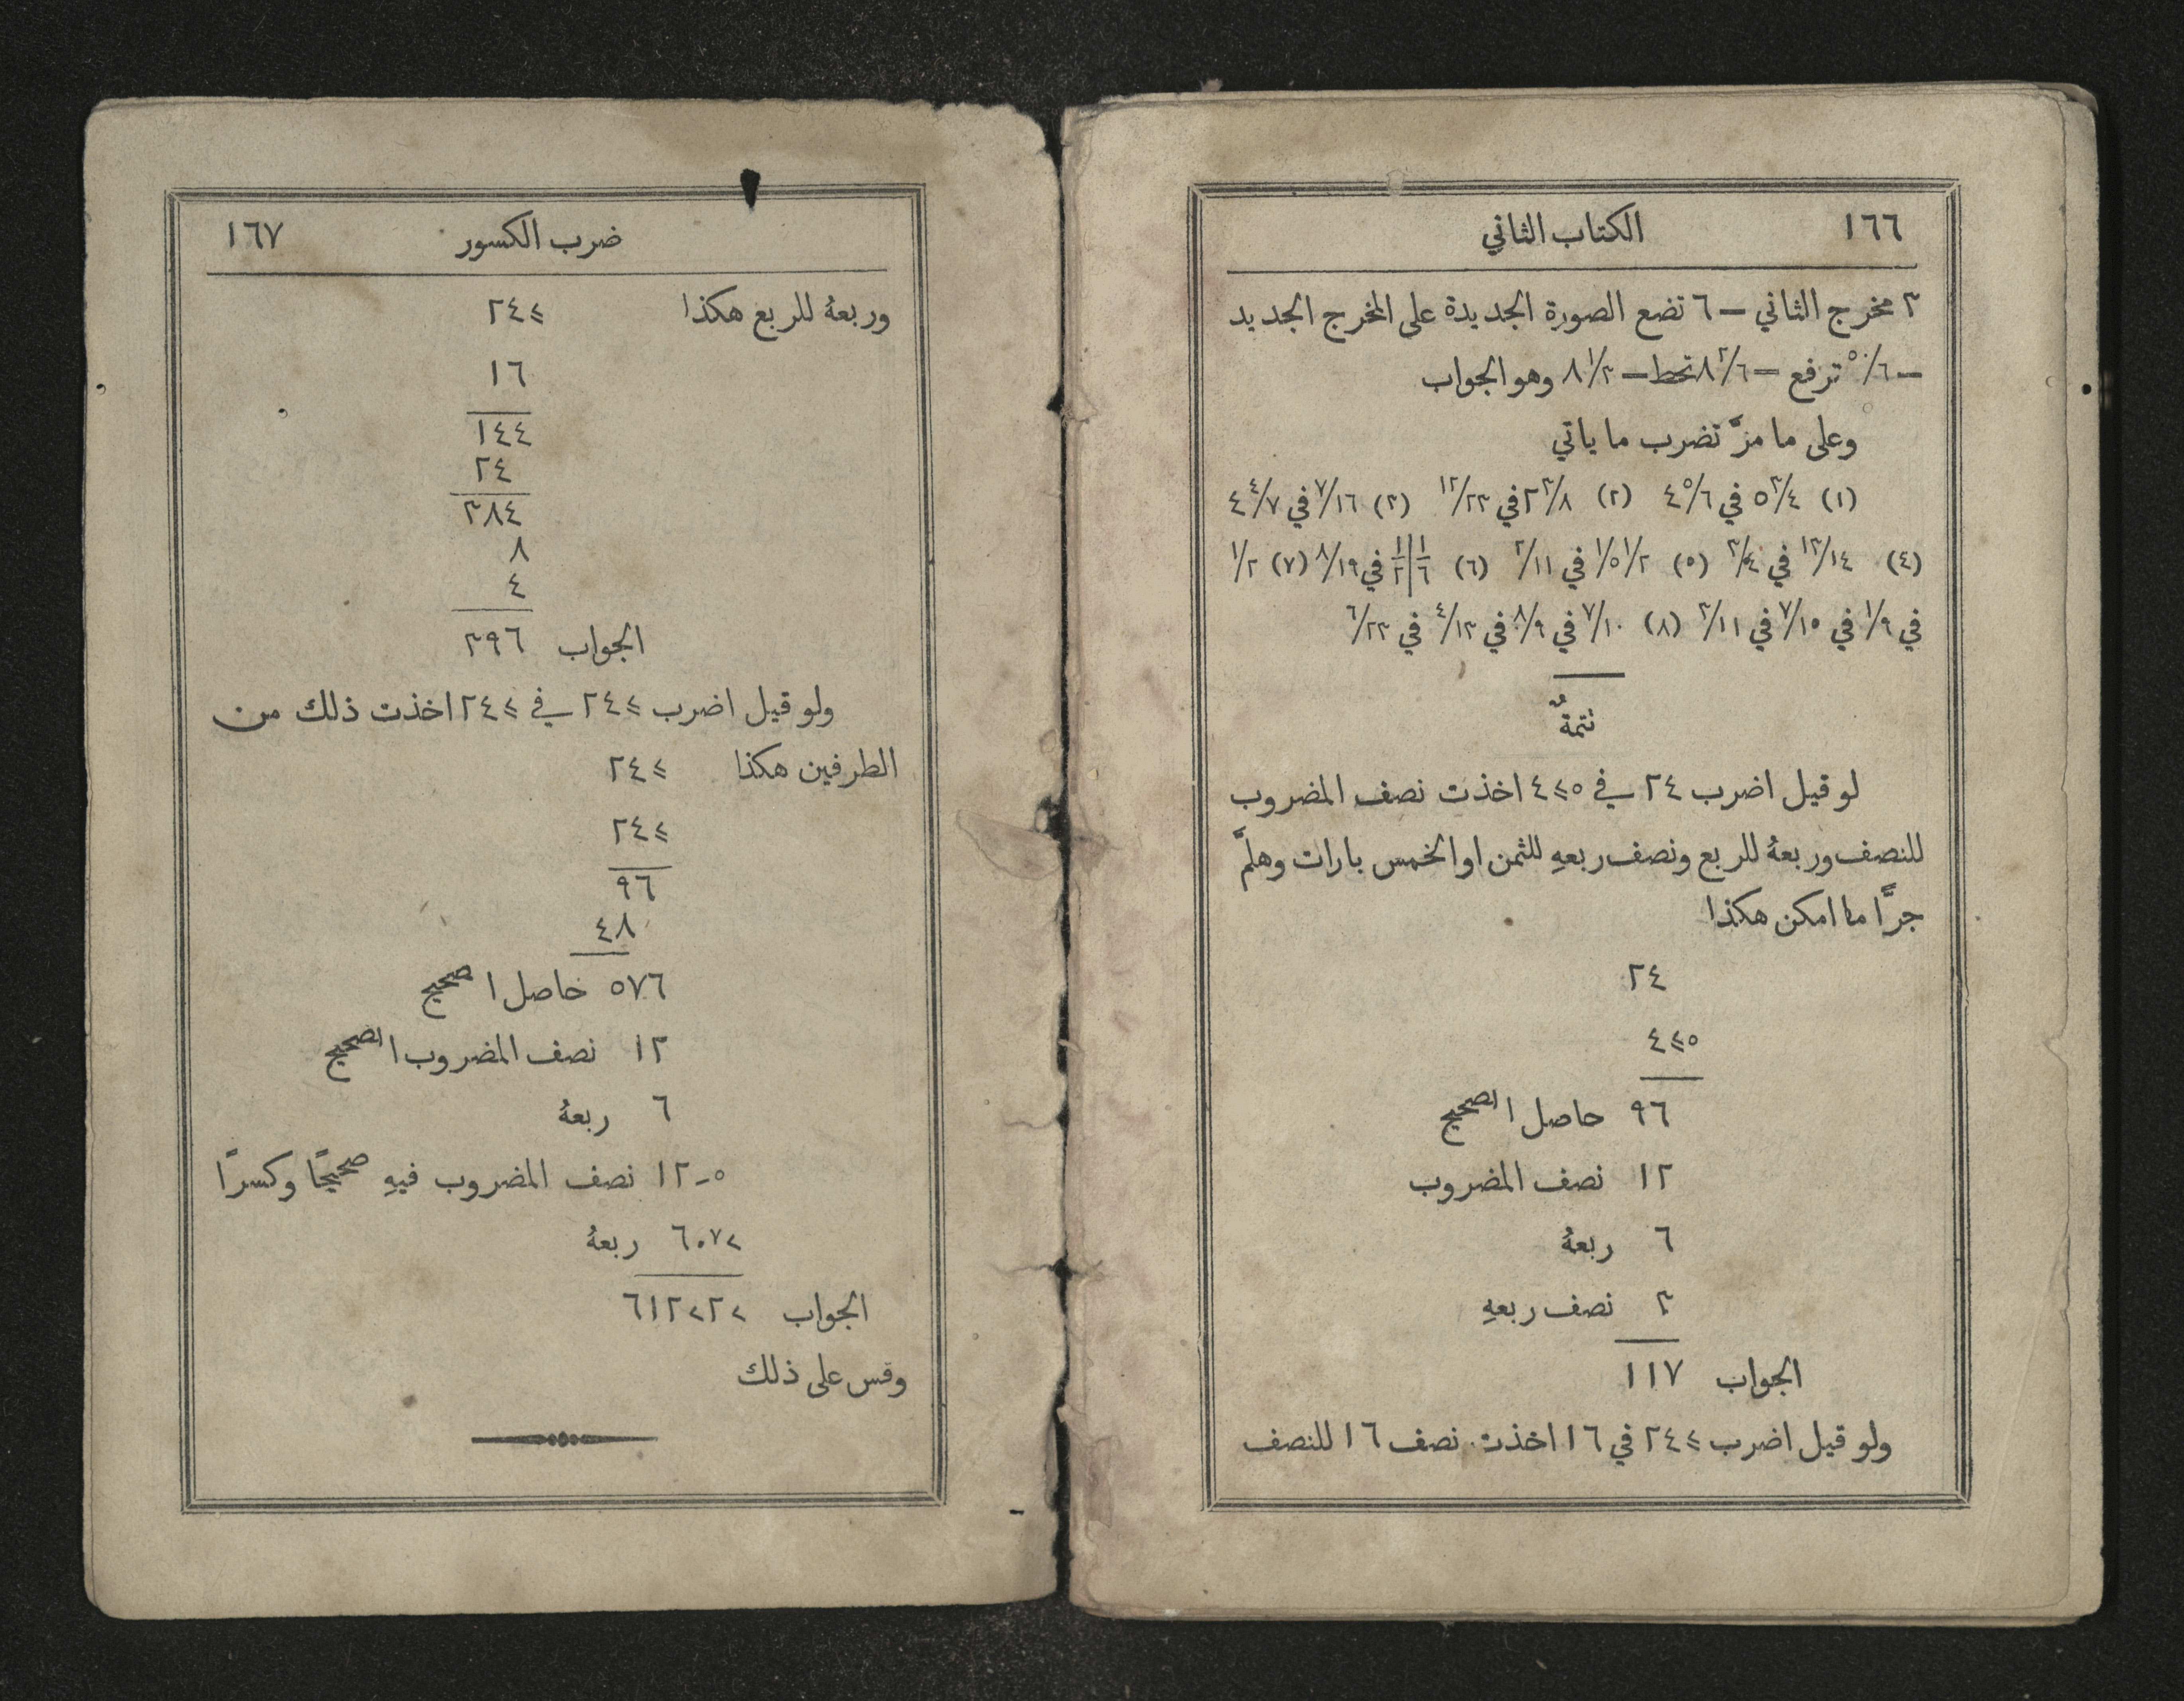 ١٦٦ الكتاب الثاني
٣ مخرج الثاني — ٦ تضع الصورة الجديدة على المخرج الجديد
— ٥٠/٦ ترفع — ٨ ٢/٦ تحط — ٨ ١/٣ وهو الجواب
وعلى ما مرَّ تضرب ما ياتي
(١) ٥ ٣/٤ في ٤ ٥/٦ (٢) ٢ ٣/٨ في ١٢/٢٣ (٣) ٧/١٦ في ٤ ٤/٧
(٤) ١٣/١٤ في ٣/٤ (٥) ١/٢ ١/٥ في ٢/١١ (٦) ١/٦ | ١/٢ في ٨/١٩ (٧) ١/٢
في ١/٩ في ٧/١٥ في ٣/١١ (٨) ٧/١٠ في ٨/٩ في ٤/١٣ في ٦/٢٣
تتمةٌ
لو قيل اضرب ٢٤ في ٤⪯٥ اخذت نصف المضروب
للنصف وربعهُ للربع ونصف ربعهِ للثمن او الخمس بارات وهلمَّ
جرًّا ما امكن هكذا
٢٤
٤⪯٥
٩٦ حاصل الصحيح
١٢ نصف المضروب
٦ ربعهُ
٣ نصف ربعهِ
الجواب ١١٧
ولو قيل اضرب ٢٤⪯ في ١٦ اخذت نصف ١٦ للنصف
ضرب الكسور ١٦٧
وربعهُ للربع هكذا ٢٤⪯
١٦
١٤٤
٢٤
٣٨٤
٨
٤
الجواب ٣٩٦
ولو قيل اضرب ٢٤⪯ في ٢٤⪯ اخذت ذلك من
الطرفين هكذا ٢٤⪯
٢٤⪯
٩٦
٤٨
٥٧٦ حاصل ا صحيح
١٢ نصف المضروب الصحيح
٦ ربعهُ
١٢-٥ نصف المضروب فيهِ صحيحًا وكسرًا
ربعهُ
الجواب
وقس على ذلك